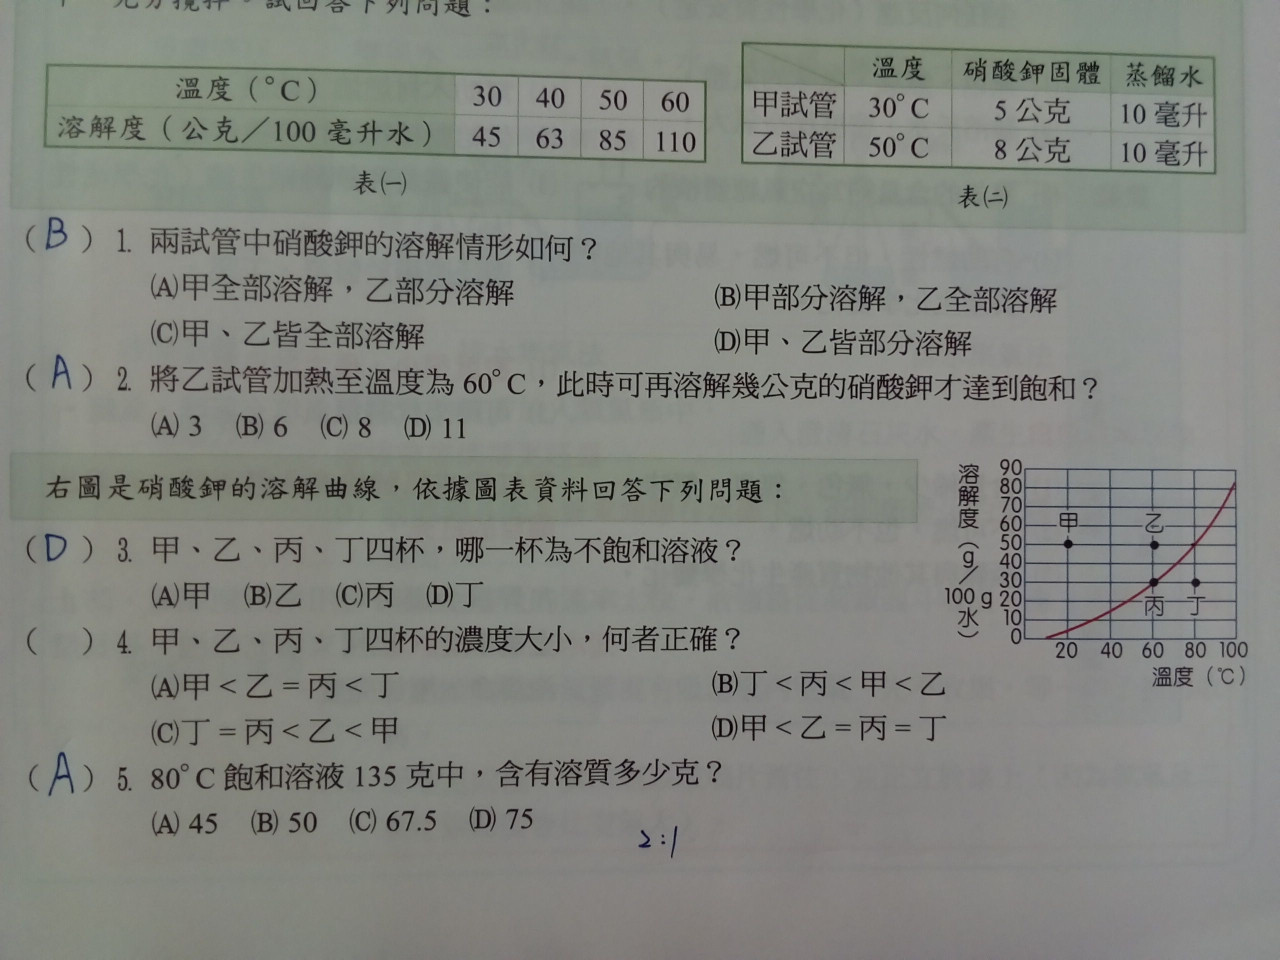 充分攪拌。試回答下列問題：
溫度（°C） 30 40 50 60
溶解度（公克／100 毫升水） 45 63 85 110
表㈠
溫度 硝酸鉀固體 蒸餾水
甲試管 30°C 5 公克 10 毫升
乙試管 50°C 8 公克 10 毫升
表㈡
（B）1. 兩試管中硝酸鉀的溶解情形如何？
(A)甲全部溶解，乙部分溶解 (B)甲部分溶解，乙全部溶解
(C)甲、乙皆全部溶解 (D)甲、乙皆部分溶解
（A）2. 將乙試管加熱至溫度為 60°C，此時可再溶解幾公克的硝酸鉀才達到飽和？
(A) 3 (B) 6 (C) 8 (D) 11
右圖是硝酸鉀的溶解曲線，依據圖表資料回答下列問題：
（D）3. 甲、乙、丙、丁四杯，哪一杯為不飽和溶液？
(A)甲 (B)乙 (C)丙 (D)丁
（ ）4. 甲、乙、丙、丁四杯的濃度大小，何者正確？
(A)甲＜乙＝丙＜丁 (B)丁＜丙＜甲＜乙
(C)丁＝丙＜乙＜甲 (D)甲＜乙＝丙＝丁
（A）5. 80°C 飽和溶液 135 克中，含有溶質多少克？
(A) 45 (B) 50 (C) 67.5 (D) 75
2:1
溶解度（g／100 g 水）
90
80
70
60
50
40
30
20
10
0
甲 乙
丙 丁
20 40 60 80 100
溫度（℃）